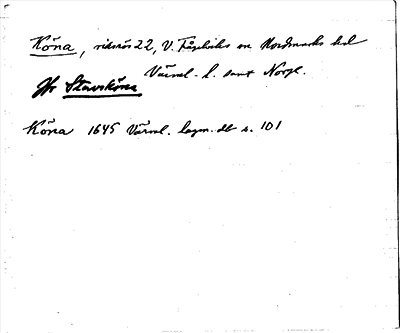 Köna, riksrös 22, V. Fågelviks sn Nordmarks hd
Värml. l. samt Norge.
Jfr Stavsköna
Köna 1645 Värml. lagm. db s. 101